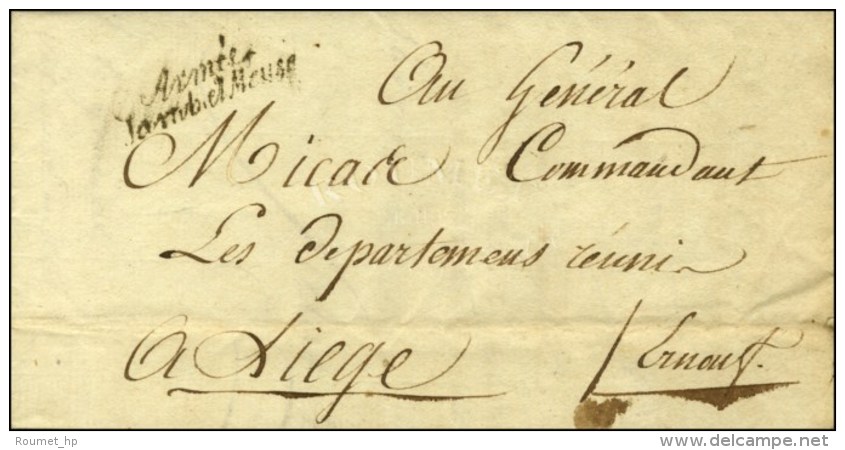 Armée
Samb. et Meuse
Au Général
Micas Commandant
Les departemens réuni
A Liege
Ernouf.
Roumet_hp
www.delcampe.net